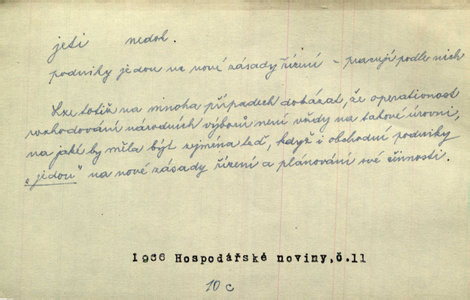 jeti nedok.
podniky jedou na nové zásady řízení - pracují podle nich
Lze totiž na mnoha případech dokázat, že operativnost
rozhodování národních výborů není vždy na takové úrovni,
na jaké by měla být zejména teď, když i obchodní podniky
„jedou" na nové zásady řízení a plánování své činnosti.
1966 Hospodářské noviny,č.11
10 c